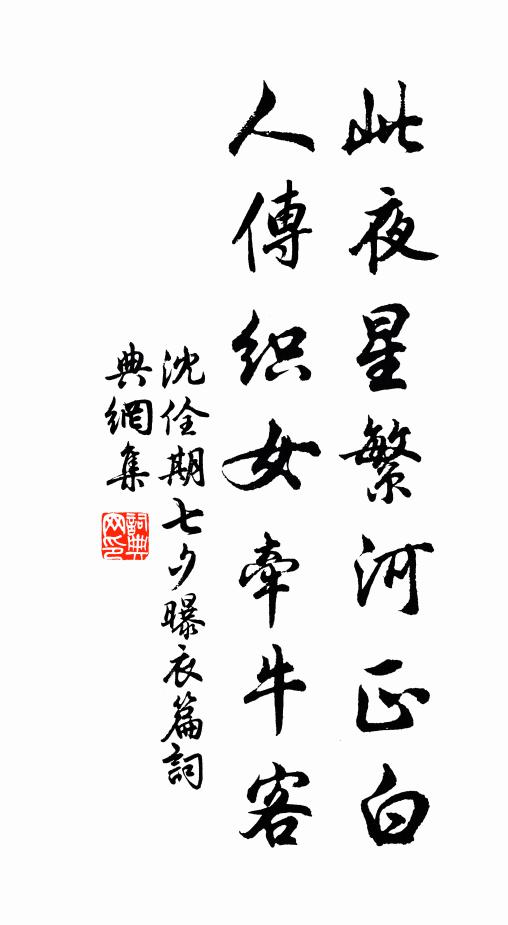 此夜星繁河正白
人傳織女牽牛客
沈佺期七夕曝衣篇詞
典網集
詞典
网印